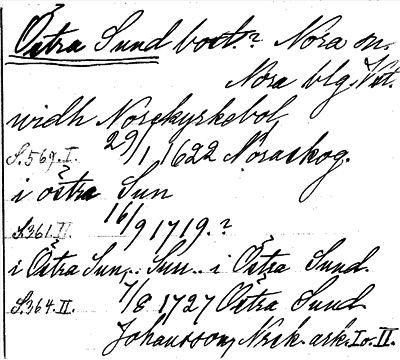 Östra Sund bost.? Nora sn.
Nora blg. Vst.
widh Norekyrkebol,
S.567.I. 29/1 1622 Noraskog.
i östra Sun
S.361.II. 16/9 1719.?
i Östra Sun,.. Sun.. i Östra Sund.
S.364.II. 7/8 1727 Östra Sund
Johansson, Nrsk. ark. I o. II.